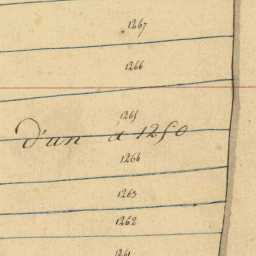 1267
1266
1265
D'un à 1250
1264
1263
1262
1261